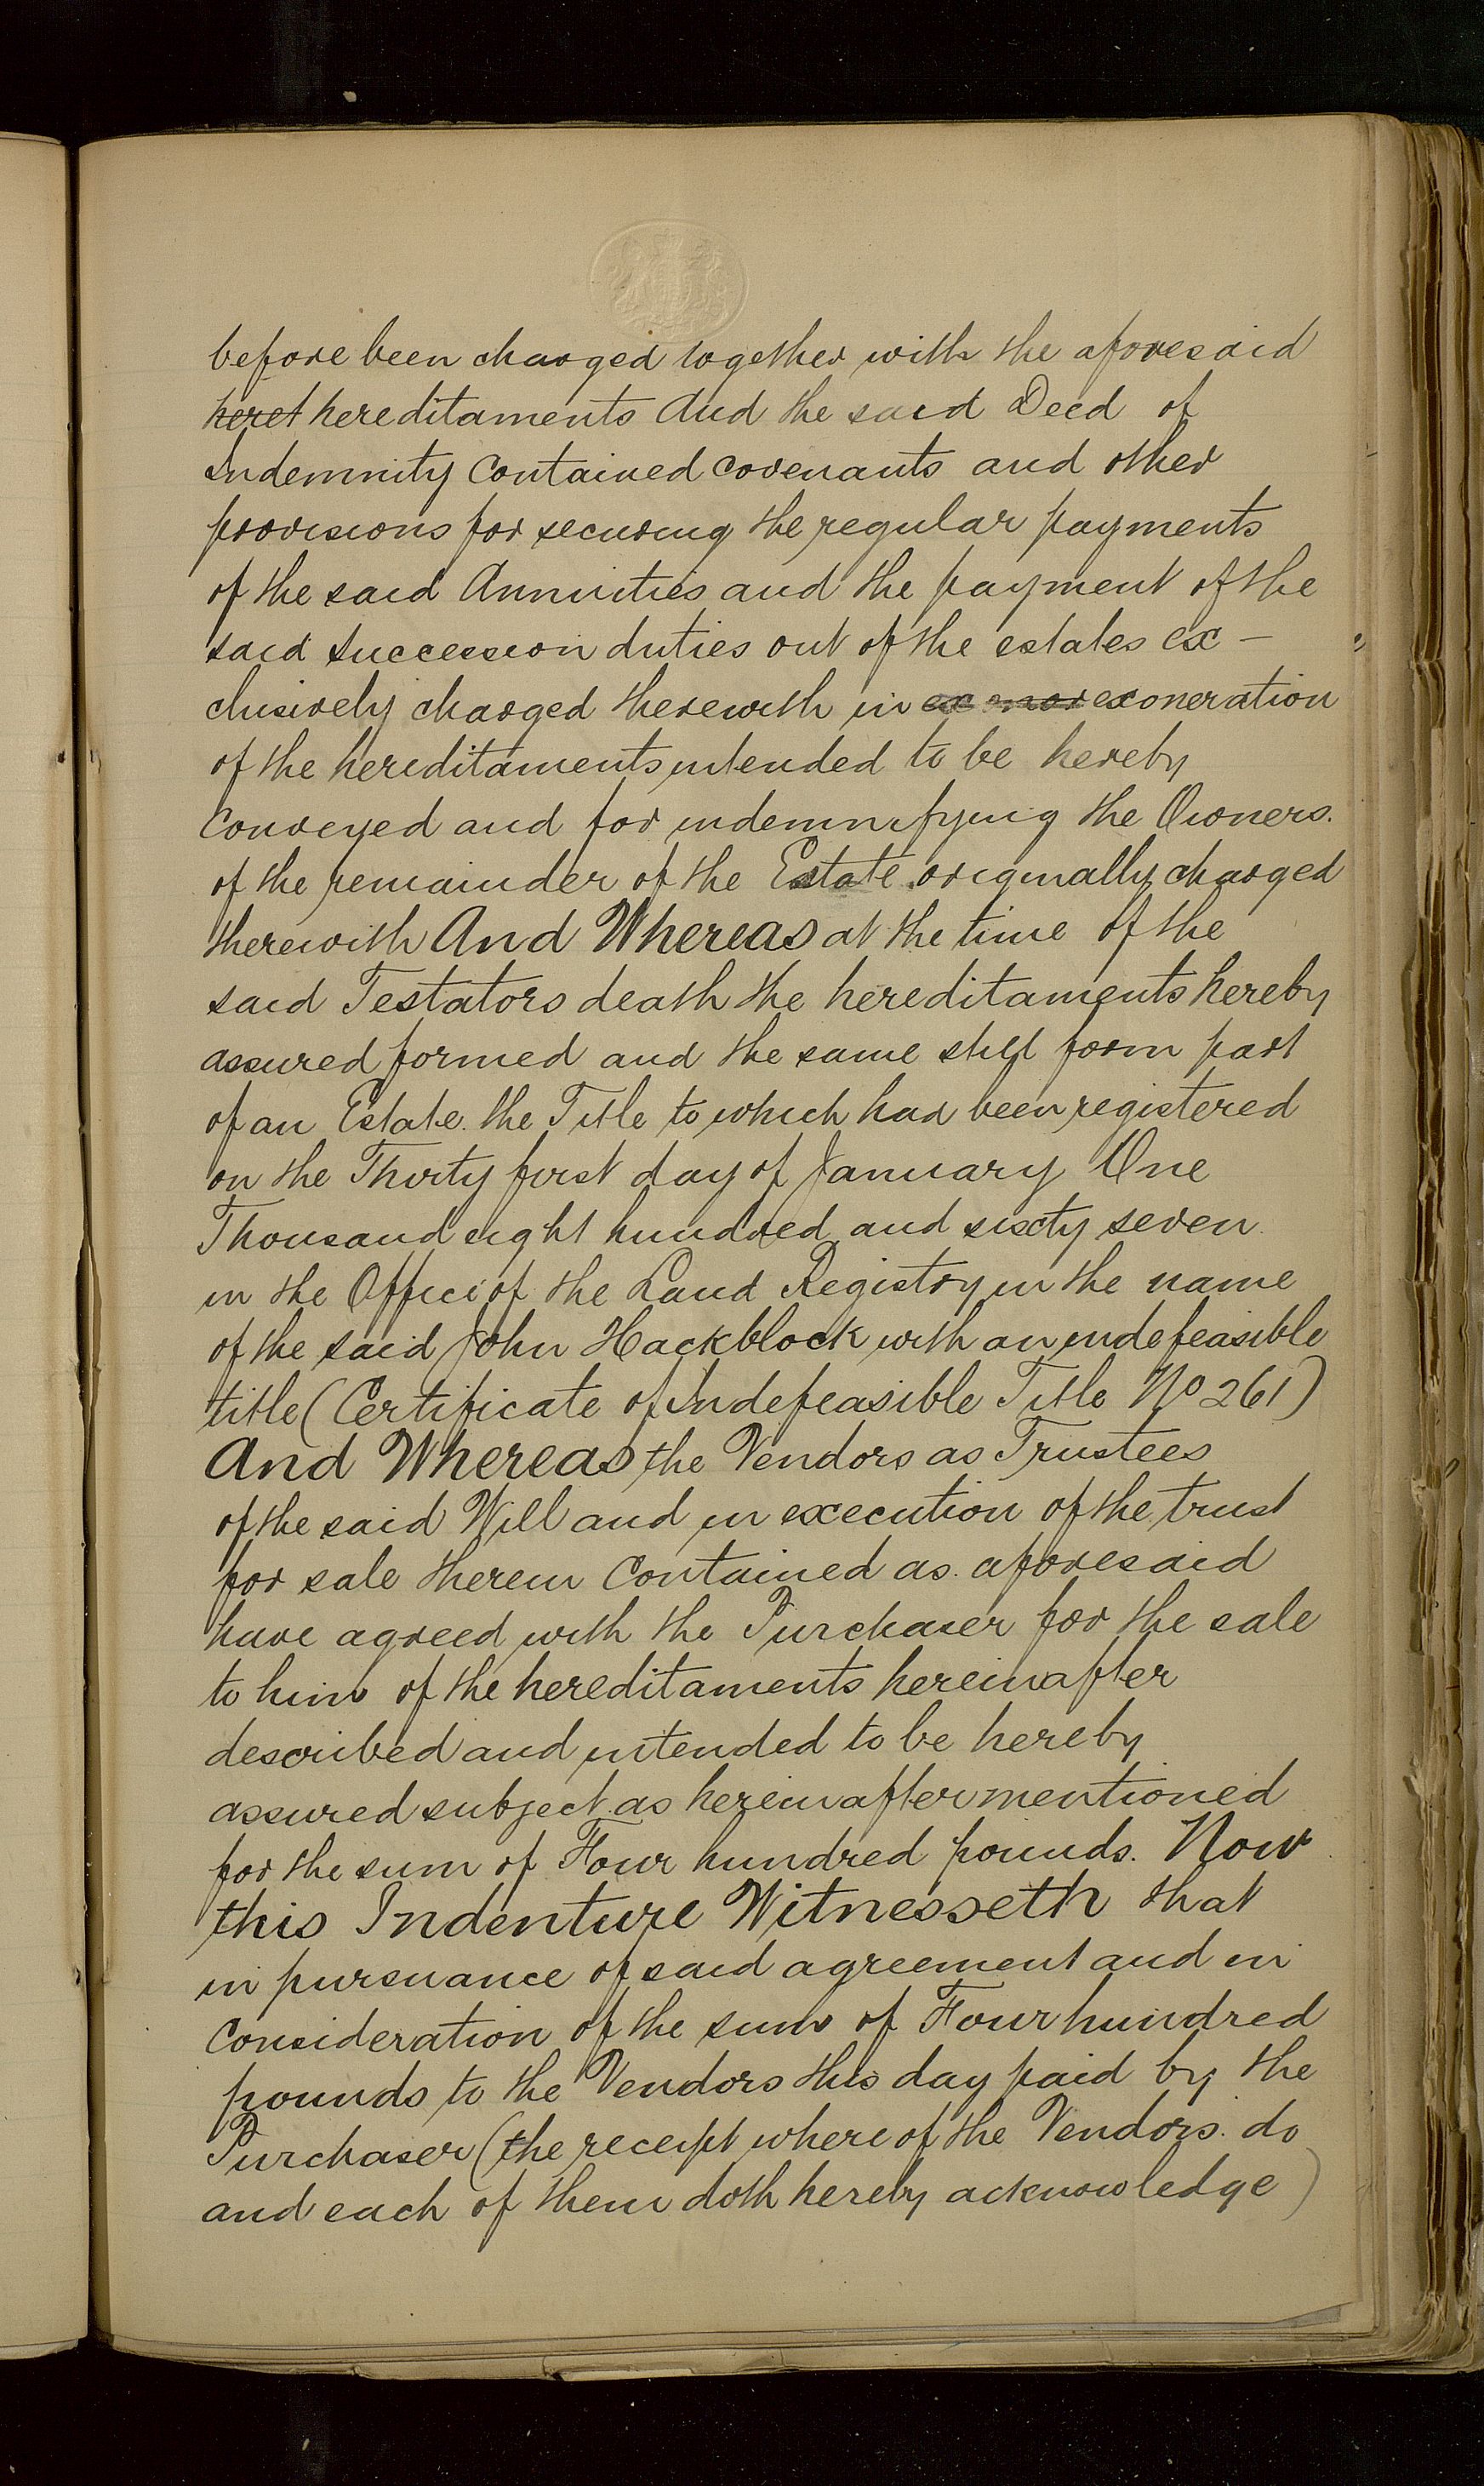 before been charged together with the aforesaid
heret hereditaments And the said Deed of
Indemnity Contained covenants and other
provisions for securing the regular payments
of the said Annuities and the payment of the
said succession duties out of the estates ex –
clusively charged therewith in exoneration
of the hereditaments intended to be hereby
Conveyed and for indemnifying the Owners.
of the remainder of the Estate originally charged
therewith And Whereas at the time of the
said Testators death the hereditaments hereby
assured formed and the same still form part
of an Estate. the Title to which had been registered
on the Thirty first day of January One
Thousand eight hundred and sixty seven
in the Office of the Land Registry in the name
of the said John Hackblock with an indefeasible
title (Certificate of Indefeasible Title No 261)
And Whereas the Vendors as Trustees
of the said Will and in execution of the trust
for sale therein Contained as. aforesaid
have agreed with the Purchaser for the sale
to him of the hereditaments hereinafter
described and intended to be hereby
assured subject as hereinafter mentioned
for the sum of Four hundred pounds. Now
this Indenture Witnesseth that
in pursuance of said agreement and in
Consideration of the sum of Four hundred
pounds to the Vendors this day paid by the
Purchaser (the receipt whereof the Vendors. do
and each of them doth hereby acknowledge)